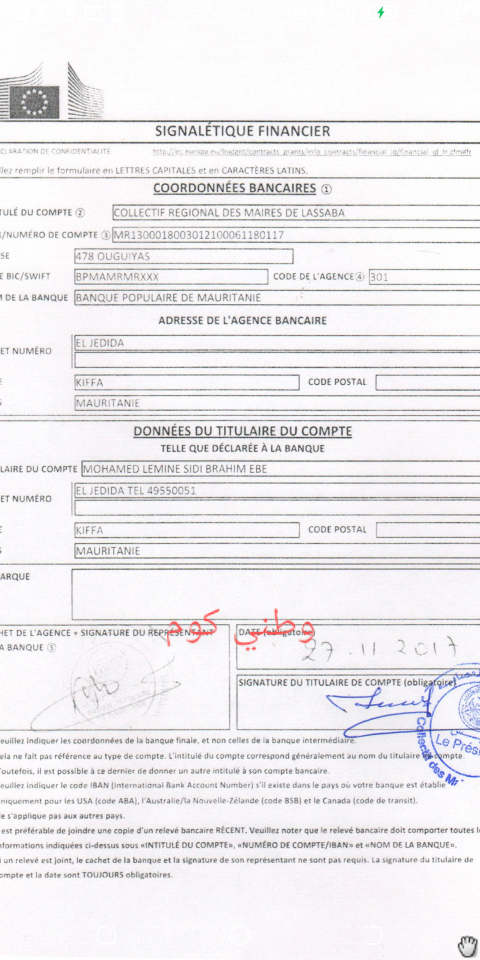 SIGNALÉTIQUE FINANCIER
CLARATION DE CONFIDENTIALITÉ http://ec.europa.eu/budget/contracts_grants/info_contracts/financial_id/financial_id_fr.cfm#fr
llez remplir le formulaire en LETTRES CAPITALES et en CARACTÈRES LATINS.
COORDONNÉES BANCAIRES ①
TULÉ DU COMPTE ② COLLECTIF REGIONAL DES MAIRES DE LASSABA
/NUMÉRO DE COMPTE ③ MR1300018003012100061180117
SE 478 OUGUIYAS
E BIC/SWIFT BPMAMRMRXXX CODE DE L'AGENCE④ 301
M DE LA BANQUE BANQUE POPULAIRE DE MAURITANIE
ADRESSE DE L'AGENCE BANCAIRE
ET NUMÉRO EL JEDIDA
E KIFFA CODE POSTAL
S MAURITANIE
DONNÉES DU TITULAIRE DU COMPTE
TELLE QUE DÉCLARÉE À LA BANQUE
LAIRE DU COMPTE MOHAMED LEMINE SIDI BRAHIM EBE
ET NUMÉRO EL JEDIDA TEL 49550051
E KIFFA CODE POSTAL
S MAURITANIE
ARQUE
وطني كوم
HET DE L'AGENCE + SIGNATURE DU REPRÉSENTANT DATE (obligatoire)
A BANQUE ⑤ 27.11 2017
SIGNATURE DU TITULAIRE DE COMPTE (obligatoire)
Le Prés
Collectif des M
euillez indiquer les coordonnées de la banque finale, et non celles de la banque intermédiaire.
ela ne fait pas référence au type de compte. L'intitulé du compte correspond généralement au nom du titulaire de compte.
outefois, il est possible à ce dernier de donner un autre intitulé à son compte bancaire.
euillez indiquer le code IBAN (International Bank Account Number) s'il existe dans le pays où votre banque est établie
niquement pour les USA (code ABA), l'Australie/la Nouvelle-Zélande (code BSB) et le Canada (code de transit).
e s'applique pas aux autres pays.
est préférable de joindre une copie d'un relevé bancaire RÉCENT. Veuillez noter que le relevé bancaire doit comporter toutes l
nformations indiquées ci-dessus sous «INTITULÉ DU COMPTE», «NUMÉRO DE COMPTE/IBAN» et «NOM DE LA BANQUE».
i un relevé est joint, le cachet de la banque et la signature de son représentant ne sont pas requis. La signature du titulaire de
ompte et la date sont TOUJOURS obligatoires.